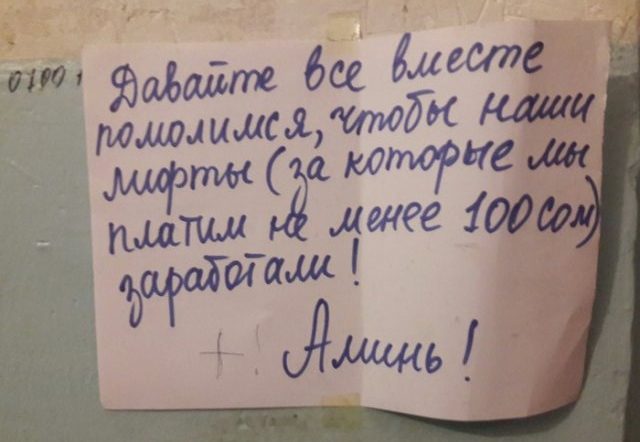 0100
Давайте все вместе
помолимся, чтобы наши
лифты (за которые мы
платим не менее 100 сом)
заработали!
+! Аминь!